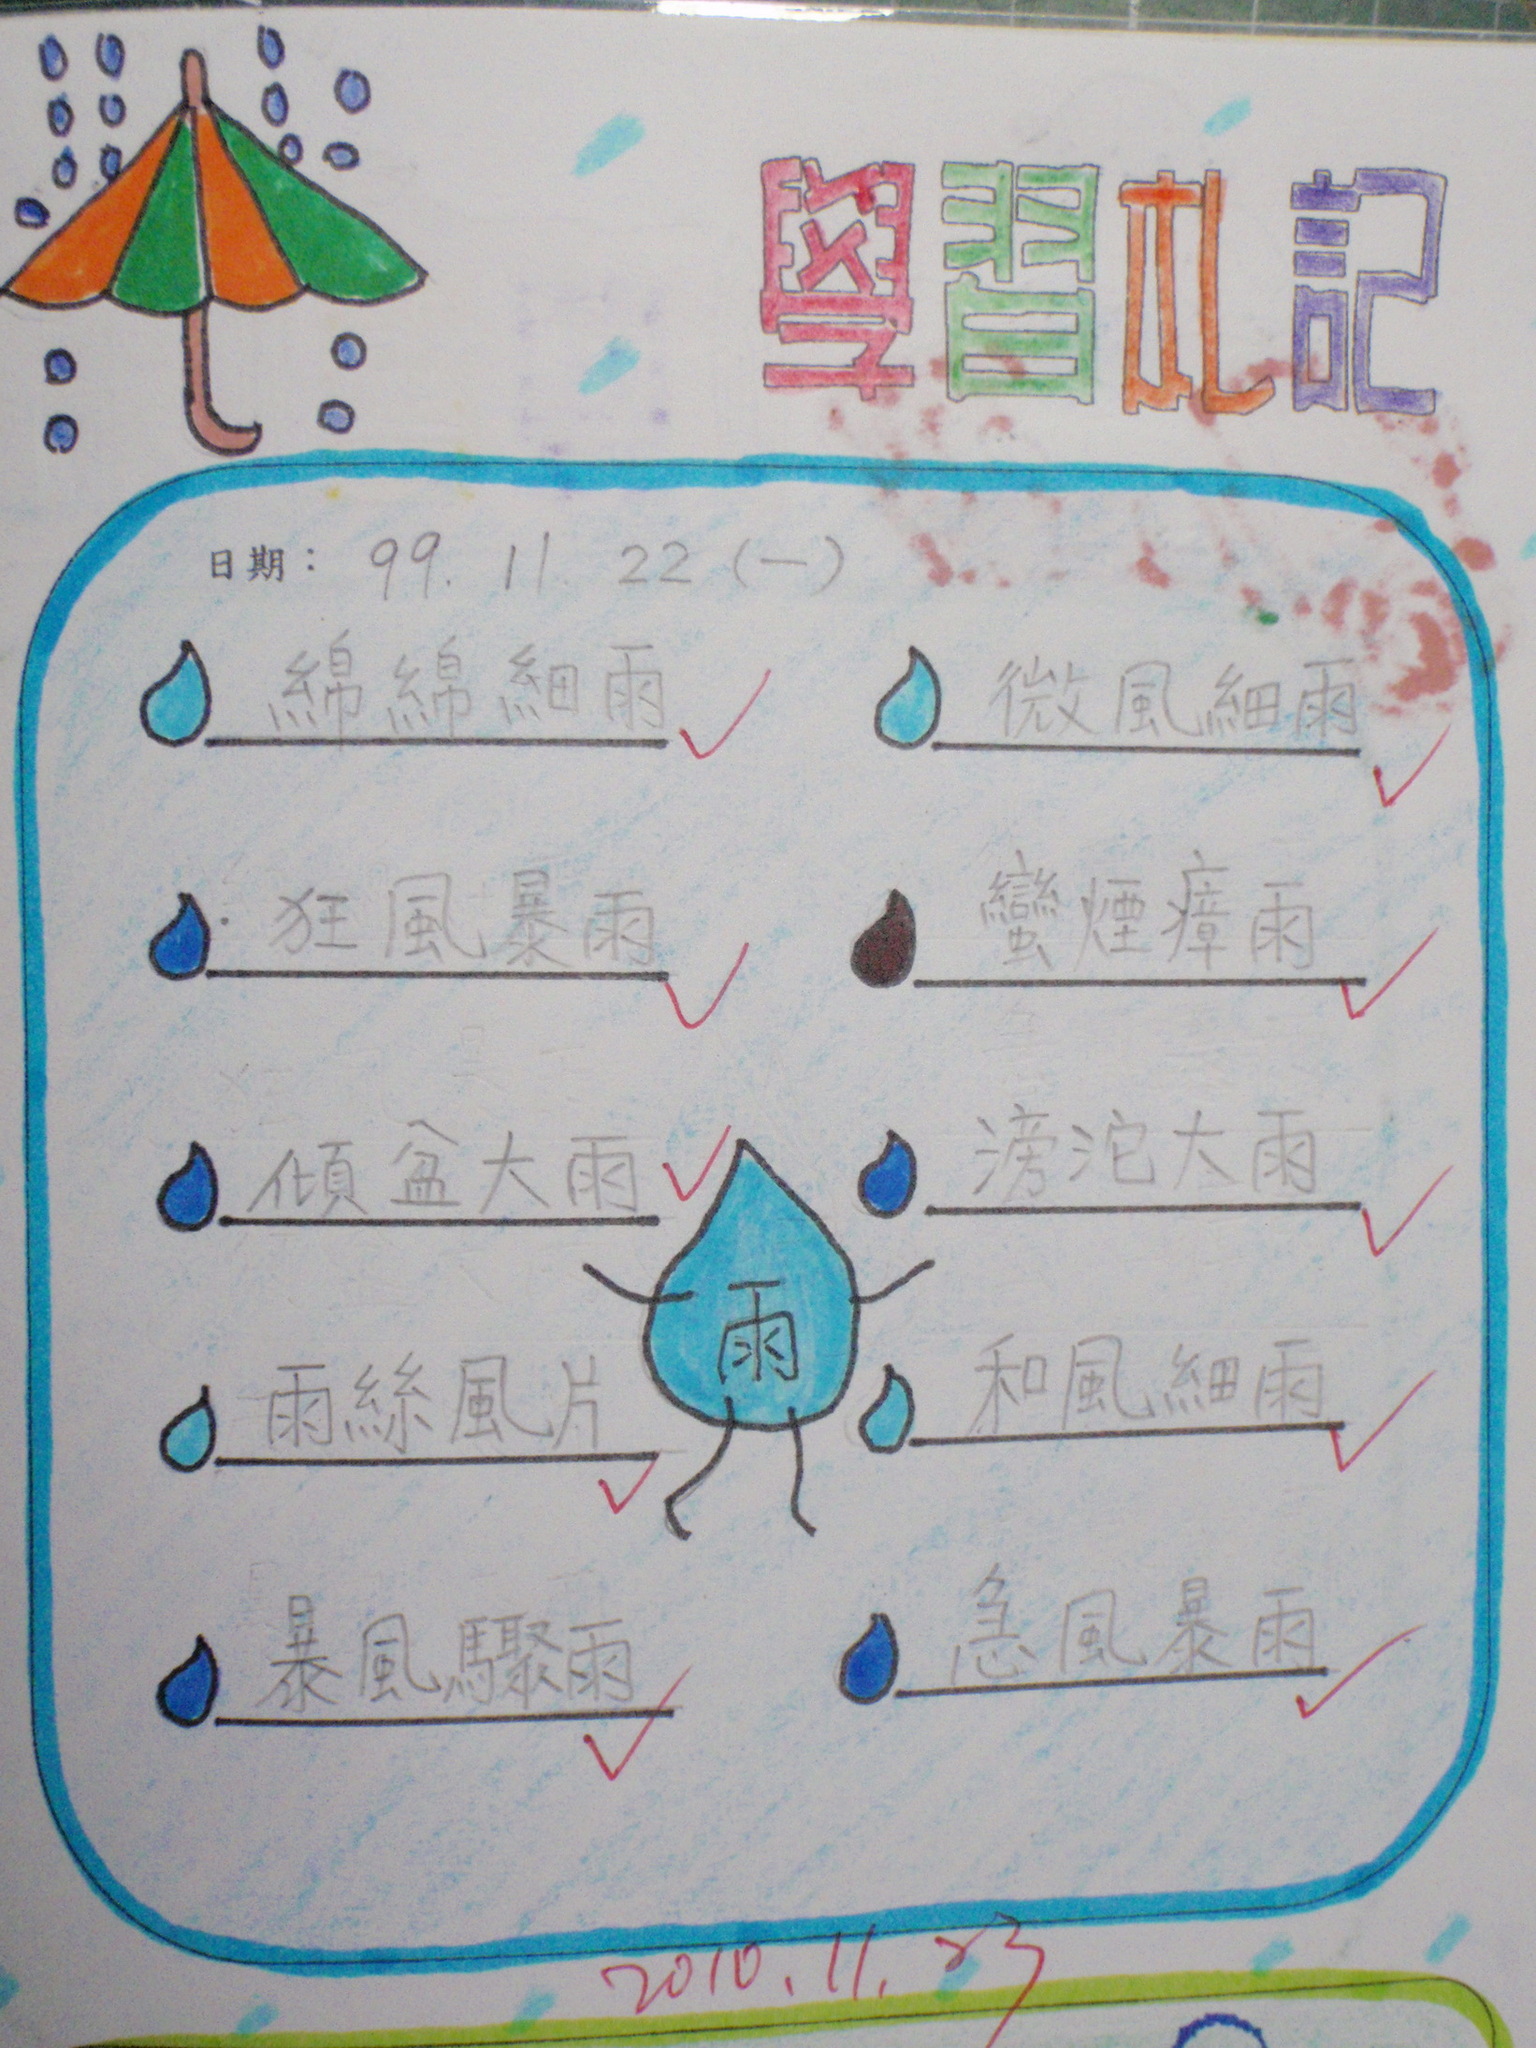 學習札記
日期： 99. 11. 22 (一)
綿綿細雨 微風細雨
狂風暴雨 蠻煙瘴雨
傾盆大雨 滂沱大雨
雨
雨絲風片 和風細雨
暴風驟雨 急風暴雨
2010. 11. 23